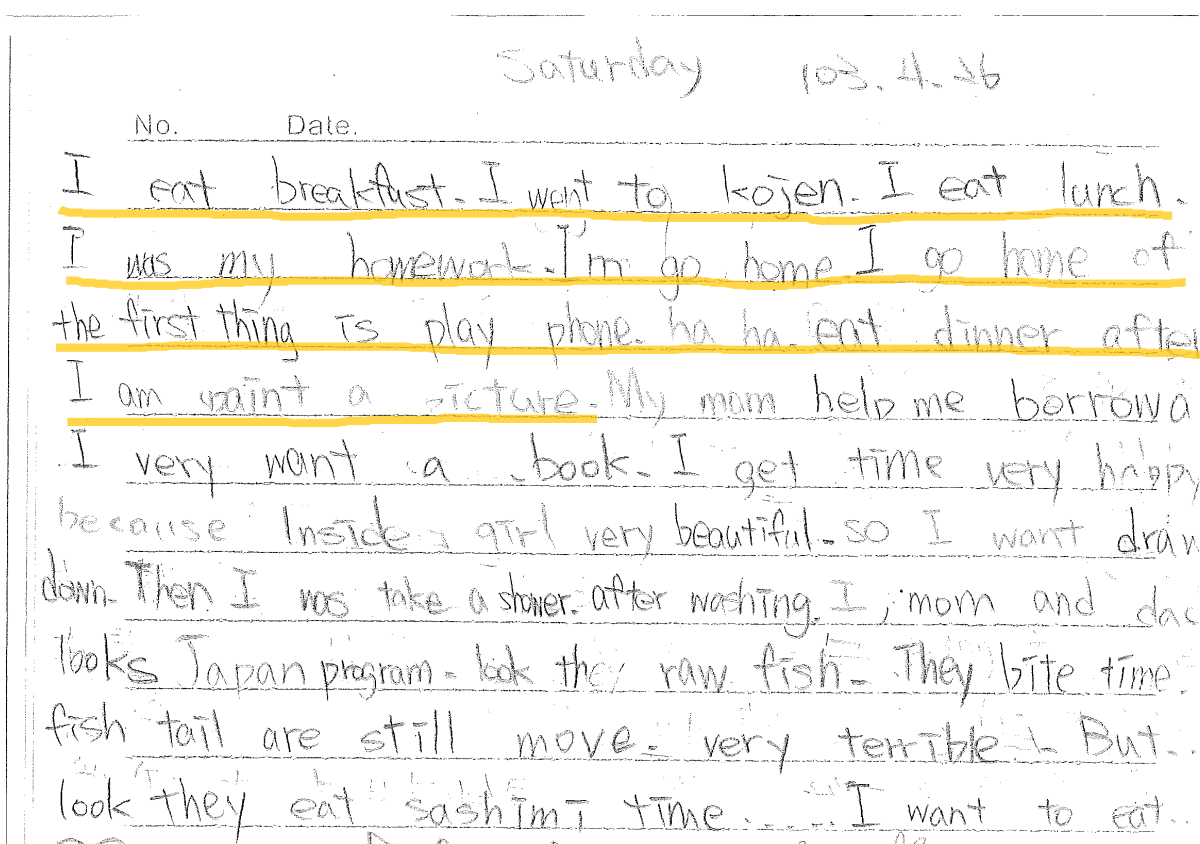 Saturday 103. 4. 26
No. Date.
I eat breakfast. I went to kojen. I eat lunch.
I was my homework. I'm go home. I go home of
the first thing is play phone. ha ha. eat dinner after
I am paint a picture. My mom help me borrow a
I very want a book. I get time very happy
because Inside girl very beautiful. so I want draw
down. Then I was take a shower. after washing. I, mom and dad
looks Japan program. look they raw fish. They bite time.
fish tail are still move. very terrible! But..
look they eat sashimi time...... I want to eat..